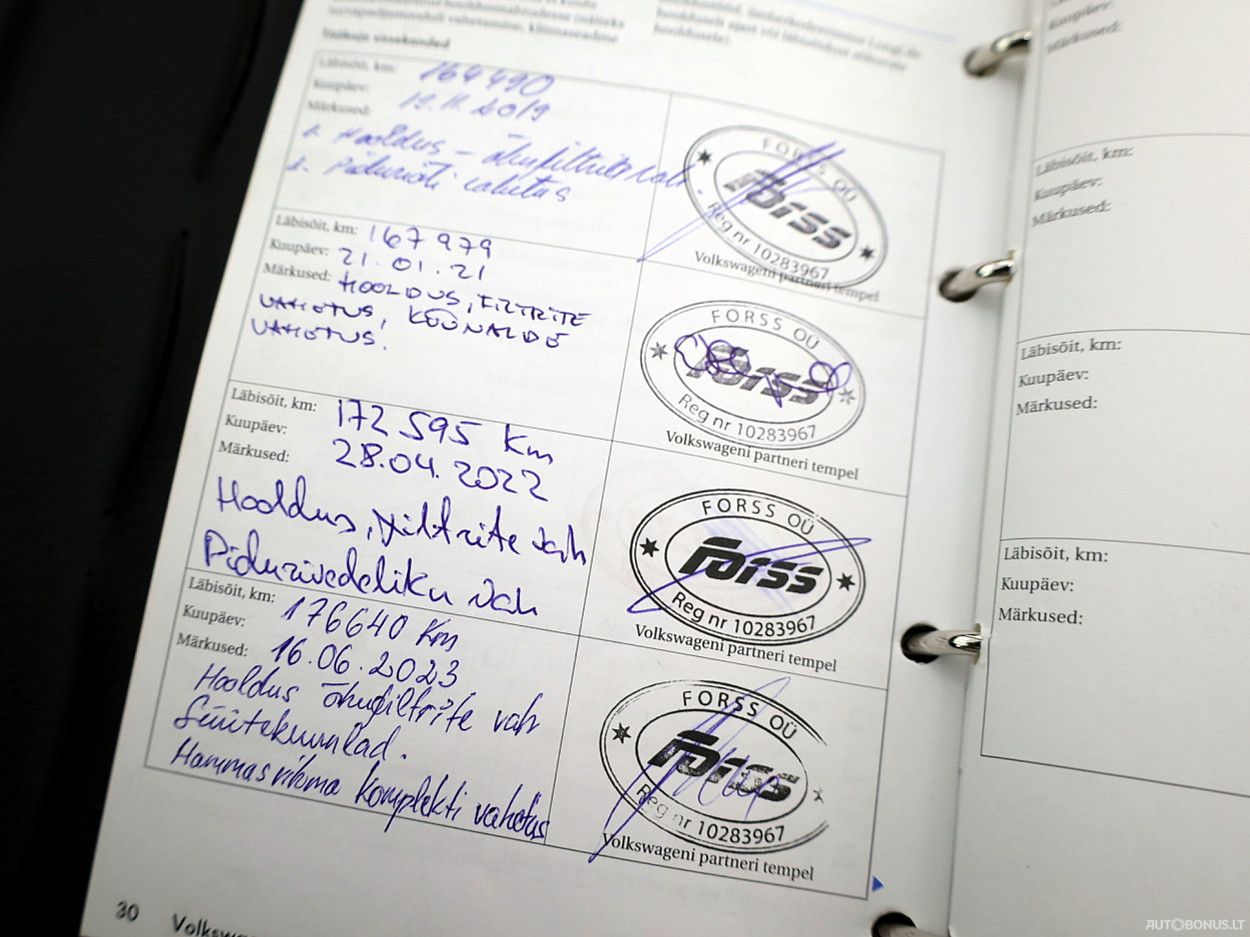 Läbisõit, km: 164490
Kuupäev: 19.11.2019
Märkused:
1. Hooldus – õhufiltrite vah.
2. Piduriõli vahetus
FORSS OÜ
Forss
Reg nr 10283967
Volkswageni partneri tempel
Läbisõit, km: 167 979
Kuupäev: 21.01.21
Märkused: HOOLDUS, FILTRITE
VAHETUS, KÜÜNALDE
VAHETUS.
FORSS OÜ
Forss
Reg nr 10283967
Volkswageni partneri tempel
Läbisõit, km: 172 595 Km
Kuupäev: 28.04.2022
Märkused:
Hooldus, filtrite vah
Pidurivedeliku vah
FORSS OÜ
Forss
Reg nr 10283967
Volkswageni partneri tempel
Läbisõit, km: 176640 Km
Kuupäev: 16.06.2023
Märkused:
Hooldus õhufiltrite vah
Süüteküünlad.
Hammasrihma komplekti vahetus
FORSS OÜ
Forss
Reg nr 10283967
Volkswageni partneri tempel
30
Läbisõit, km:
Kuupäev:
Märkused:
Läbisõit, km:
Kuupäev:
Märkused:
Läbisõit, km:
Kuupäev:
Märkused:
Kuupäev:
Märkused:
AUTOBONUS.LT